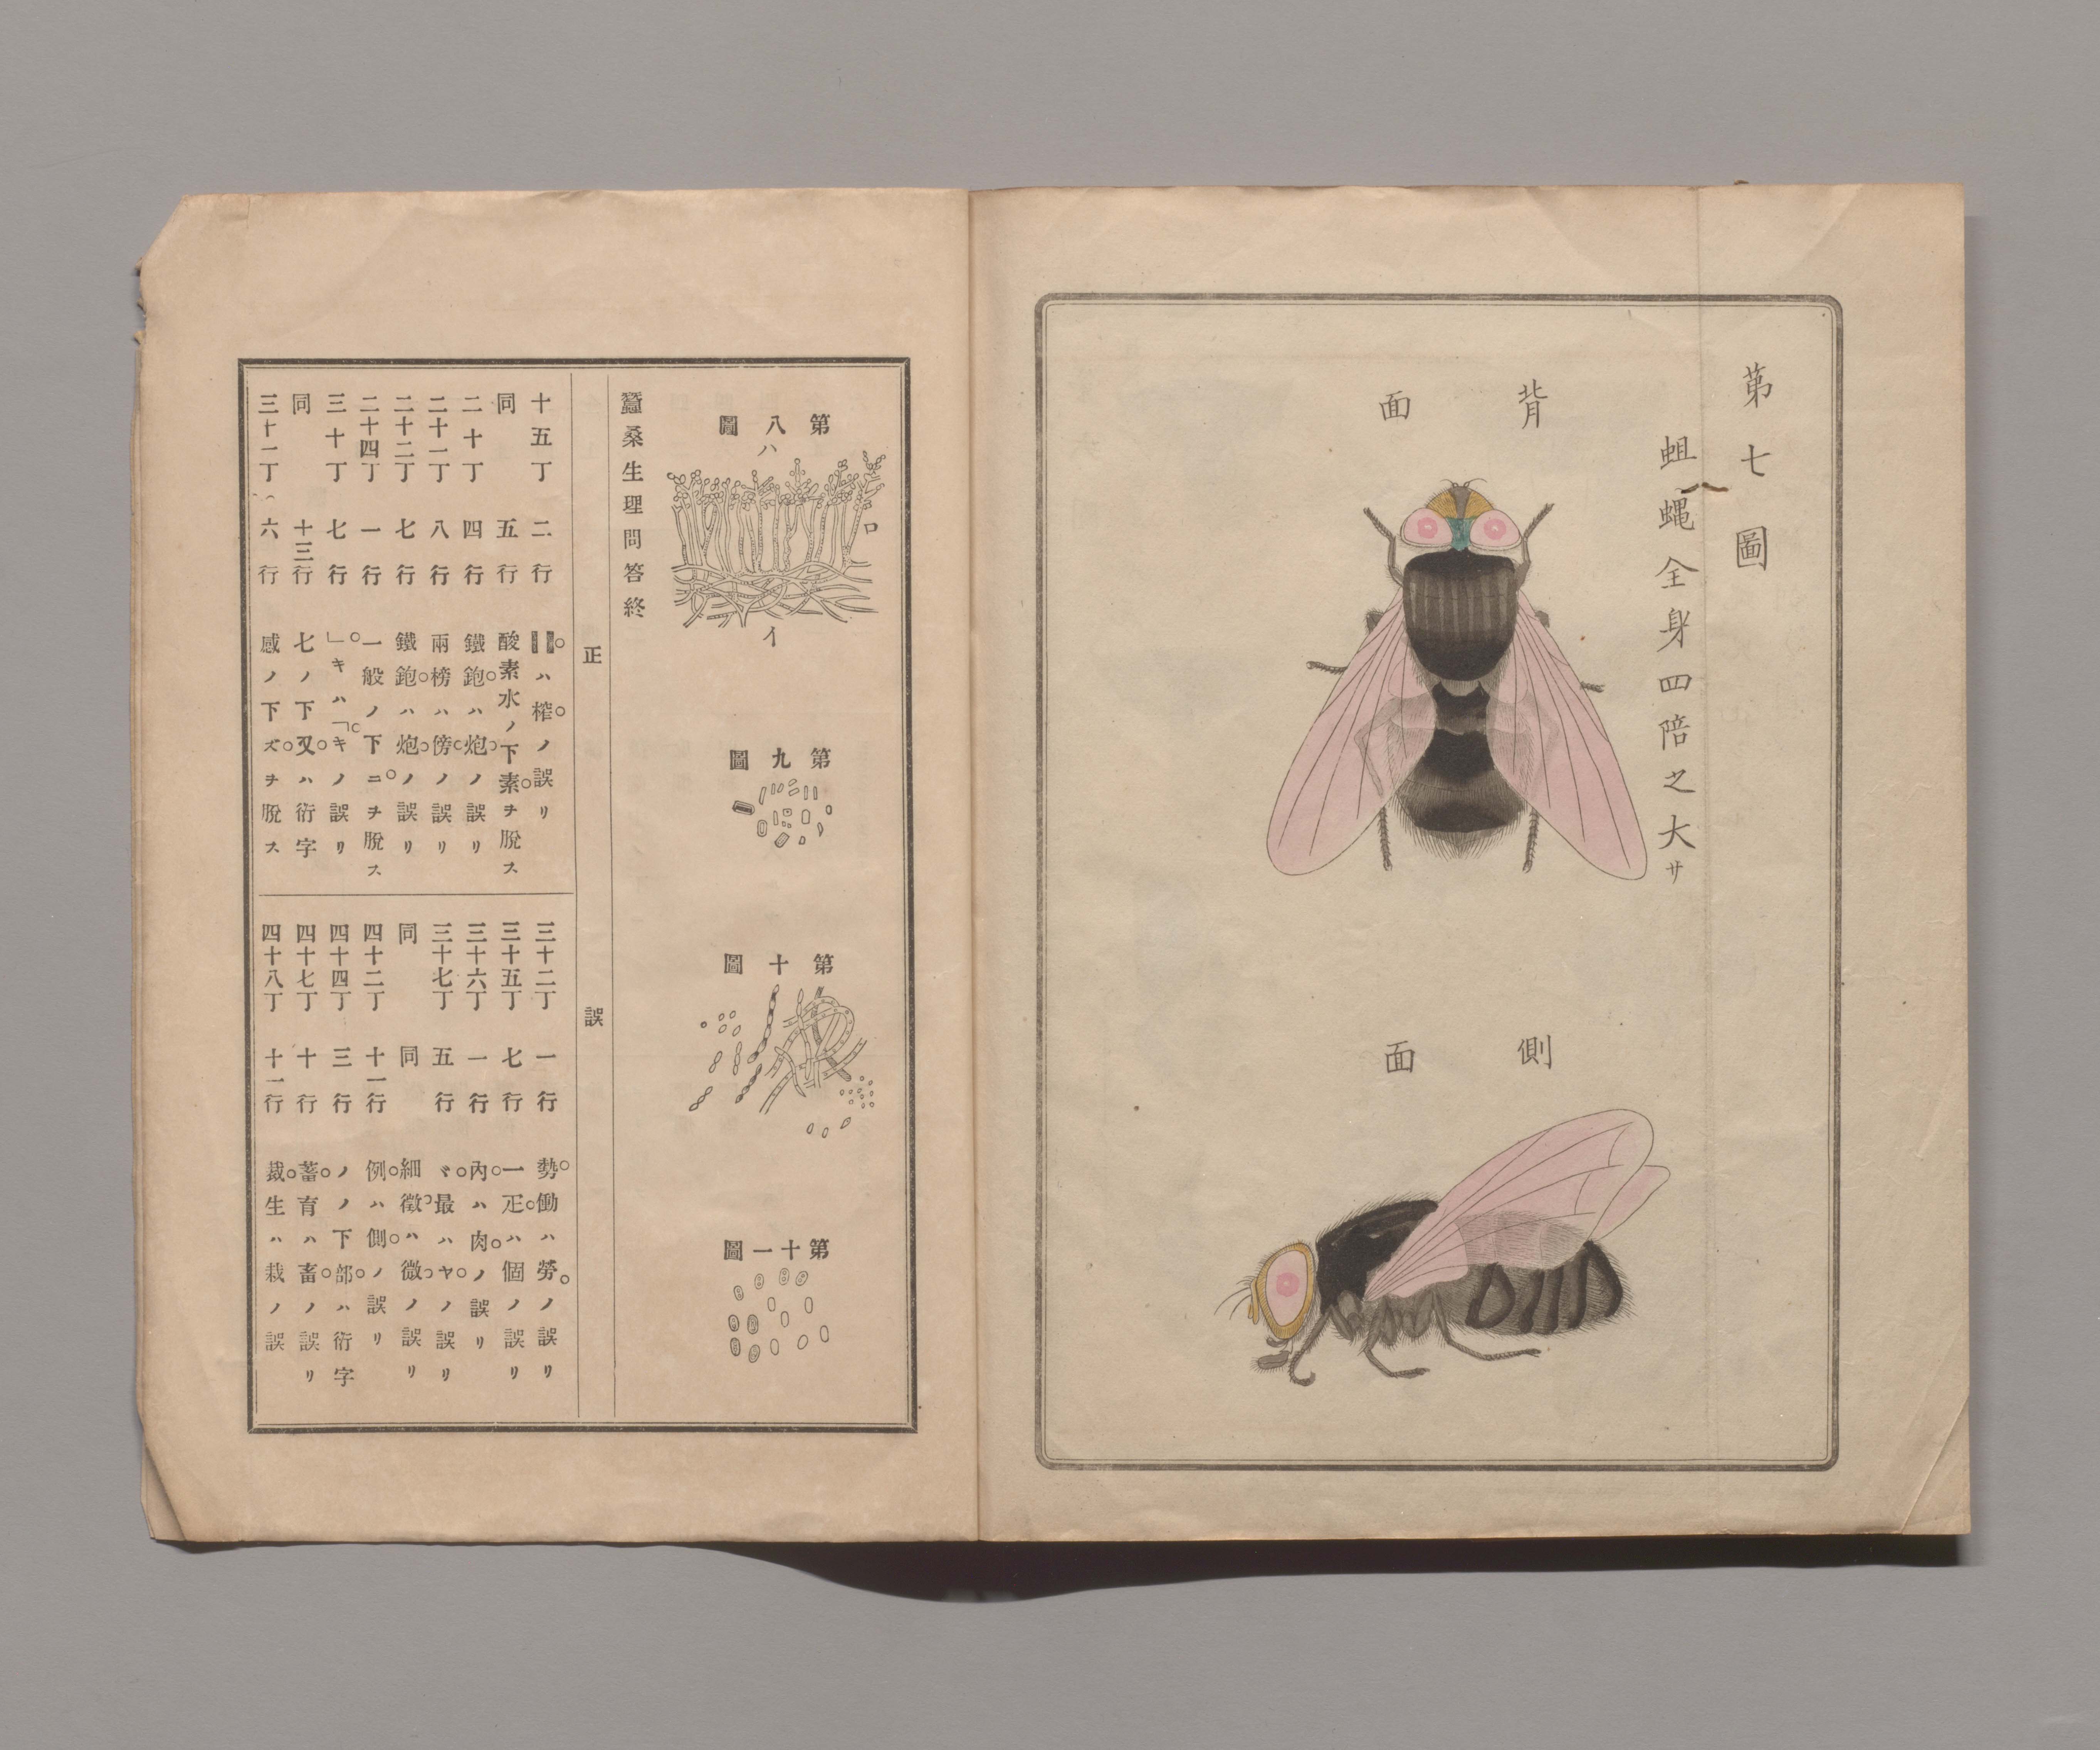 第七圖
蛆蠅全身四陪之大サ
背面
側面
第八圖
ハ
ロ
イ
第九圖
第十圖
第十一圖
蠶桑生理問答終
正誤
十五丁 二行 ハ榨ノ誤リ
同 五行 酸素水ノ下素ヲ脫ス
二十丁 四行 鐵鉋ハ炮ノ誤リ
二十一丁 八行 兩榜ハ傍ノ誤リ
二十二丁 七行 鐵鉋ハ炮ノ誤リ
二十四丁 一行 一般ノ下ニヲ脫ス
三十丁 七行 」キハ「キノ誤リ
同 十三行 七ノ下又ハ衍字
三十一丁 六行 感ノ下ズヲ脫ス
三十二丁 一行 勢働ハ勞ノ誤リ
三十五丁 七行 一疋ハ個ノ誤リ
三十六丁 一行 內ハ肉ノ誤リ
三十七丁 五行 ヾ最ハヤノ誤リ
同 同 細徵ハ微ノ誤リ
四十二丁 十一行 例ハ側ノ誤リ
四十四丁 三行 ノノ下部ハ衍字
四十七丁 十行 蓄育ハ畜ノ誤リ
四十八丁 十一行 裁生ハ栽ノ誤